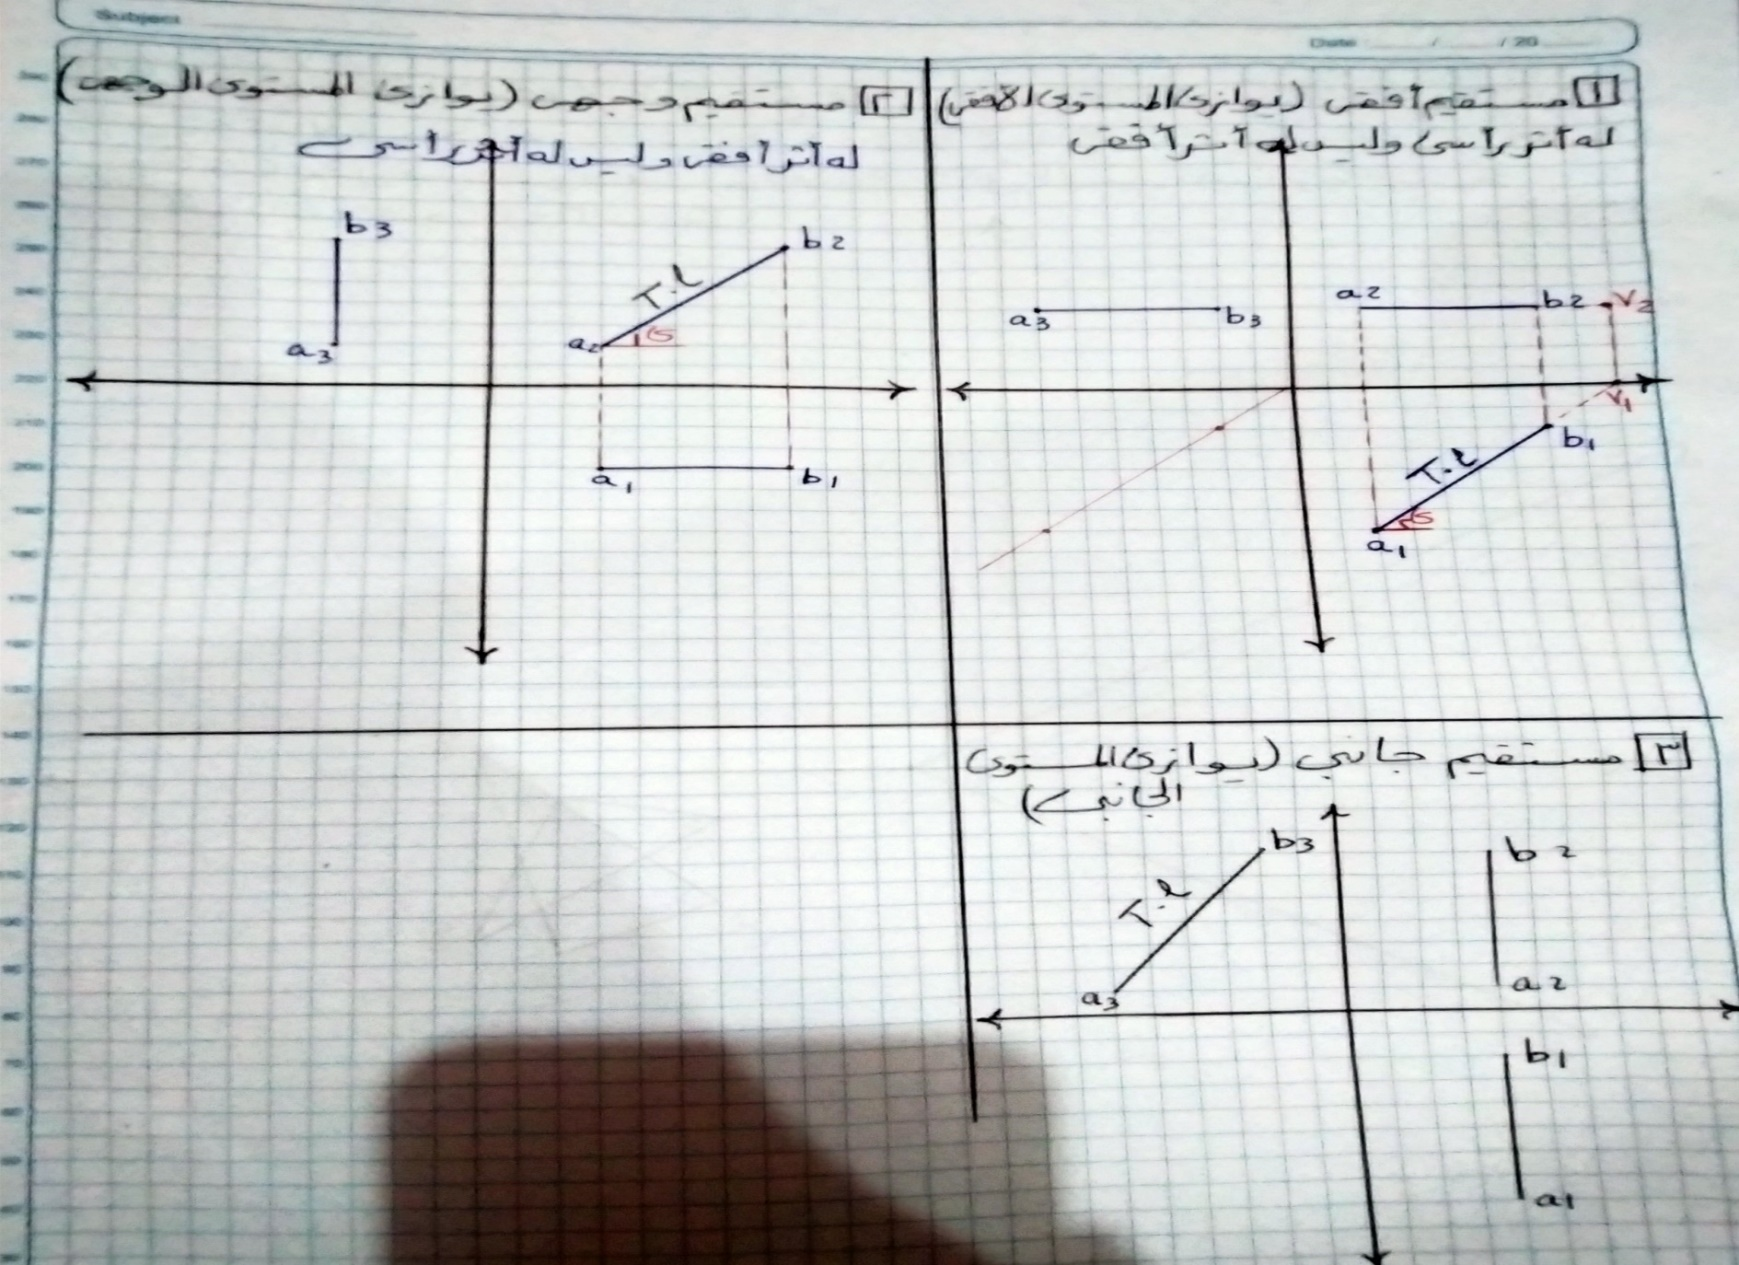 Subject
Date / / 20
١ مستقيم أفقى (يوازى المستوى الأفقى)
له آثر رأسى وليس له آثر أفقى
a2 b2 V2
a3 b3
V1
b1
T.L
a1
٢ مستقيم وجهى (يوازى المستوى الوجهى)
له آثر أفقى وليس له آثر رأسى
b3 b2
T.L
a3 a2
a1 b1
٣ مستقيم جانبى (يوازى المستوى
الجانبى)
b3 b2
T.L
a3 a2
b1
a1